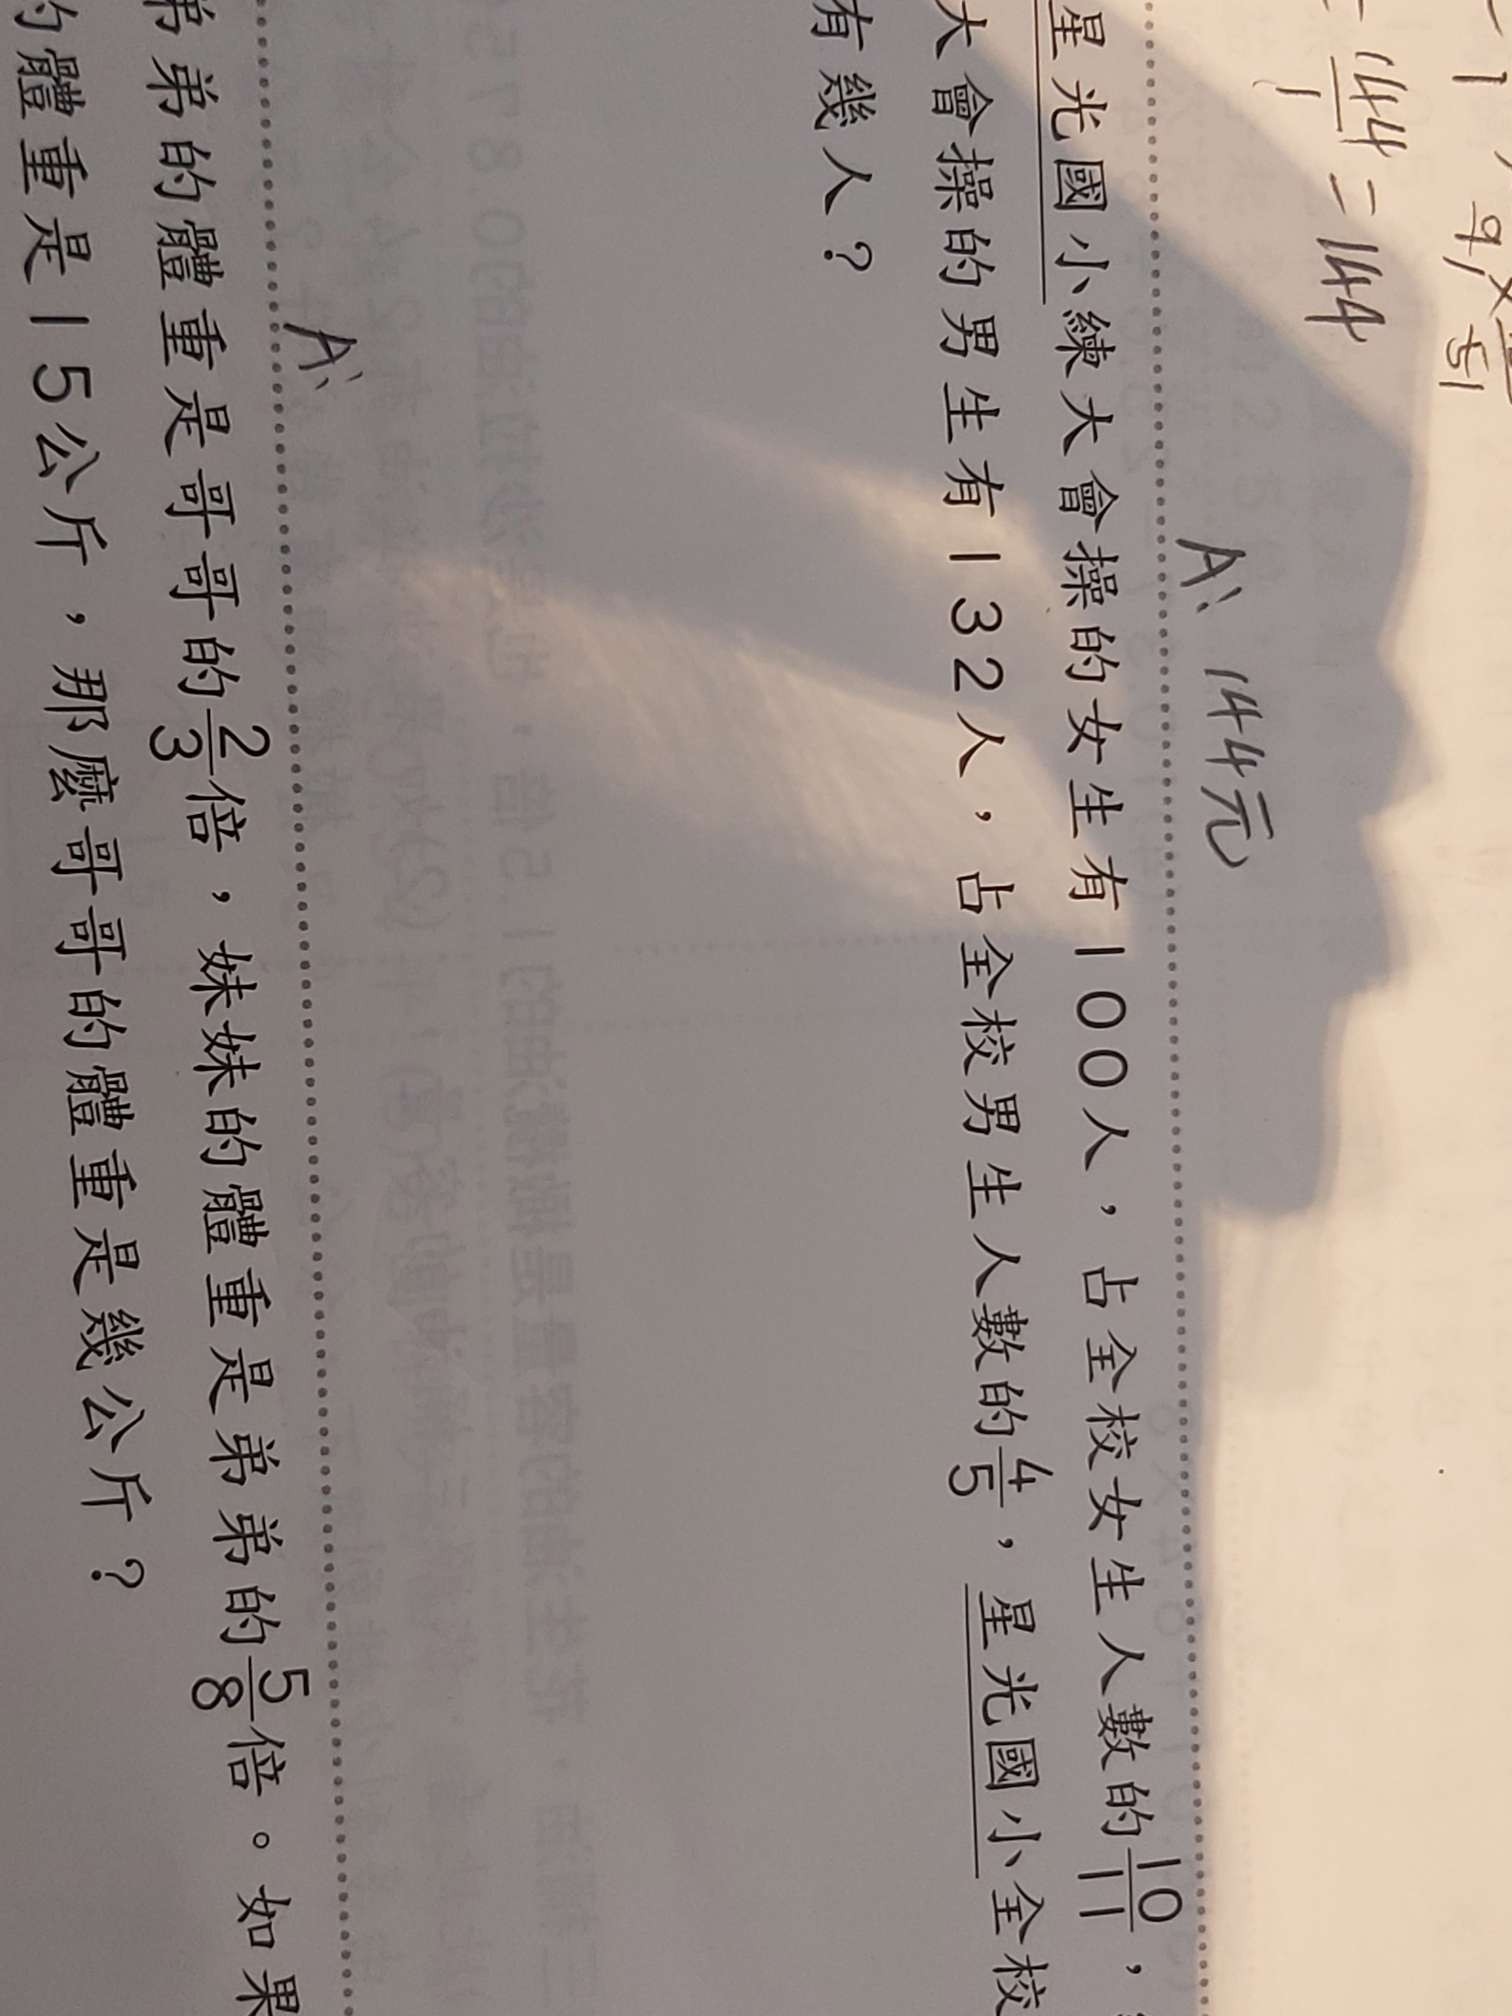 = 144/1 = 144
A: 144元
星光國小練大會操的女生有100人，占全校女生人數的10/11，
大會操的男生有132人，占全校男生人數的4/5，星光國小全校
有幾人？
A:
弟弟的體重是哥哥的2/3倍，妹妹的體重是弟弟的5/8倍。如果
的體重是15公斤，那麼哥哥的體重是幾公斤？